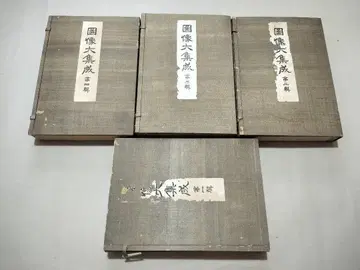 圖像大集成
第四輯
圖像大集成
第三輯
圖像大集成
第二輯
大集成
第一輯